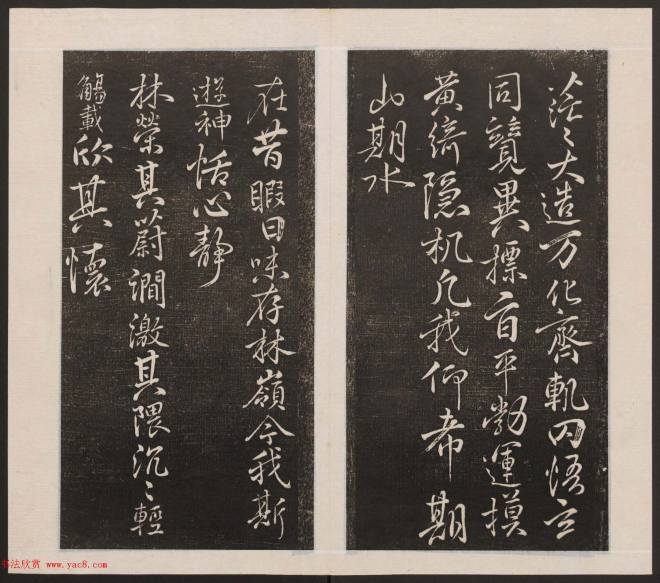 茫〻大造万化齊軌罔悟玄
同競異摽旨平勃運摸
黃綺隐机凡我仰希期
山期水
在昔暇日味存林嶺今我斯
遊神恬心靜
林榮其蔚澗激其隈汎〻輕
觴載欣其懷
书法欣赏 www.yac8.com